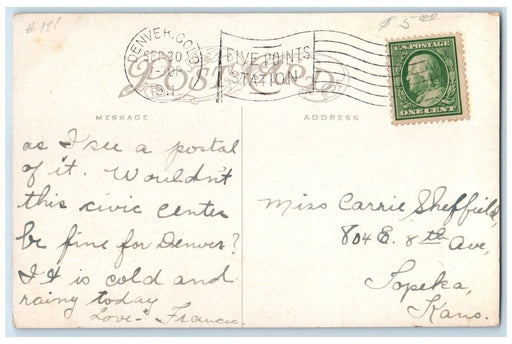 $5.00
DENVER, COLO.
SEP 30
FIVE POINTS
STATION
POST CARD
U.S. POSTAGE
ONE CENT
MESSAGE
ADDRESS
as I see a postal
of it. Wouldn't
this civic center
be fine for Denver?
It is cold and
rainy today
Love - Francis.
Miss Carrie Sheffield,
804 E. 8th Ave,
Topeka,
Kans.